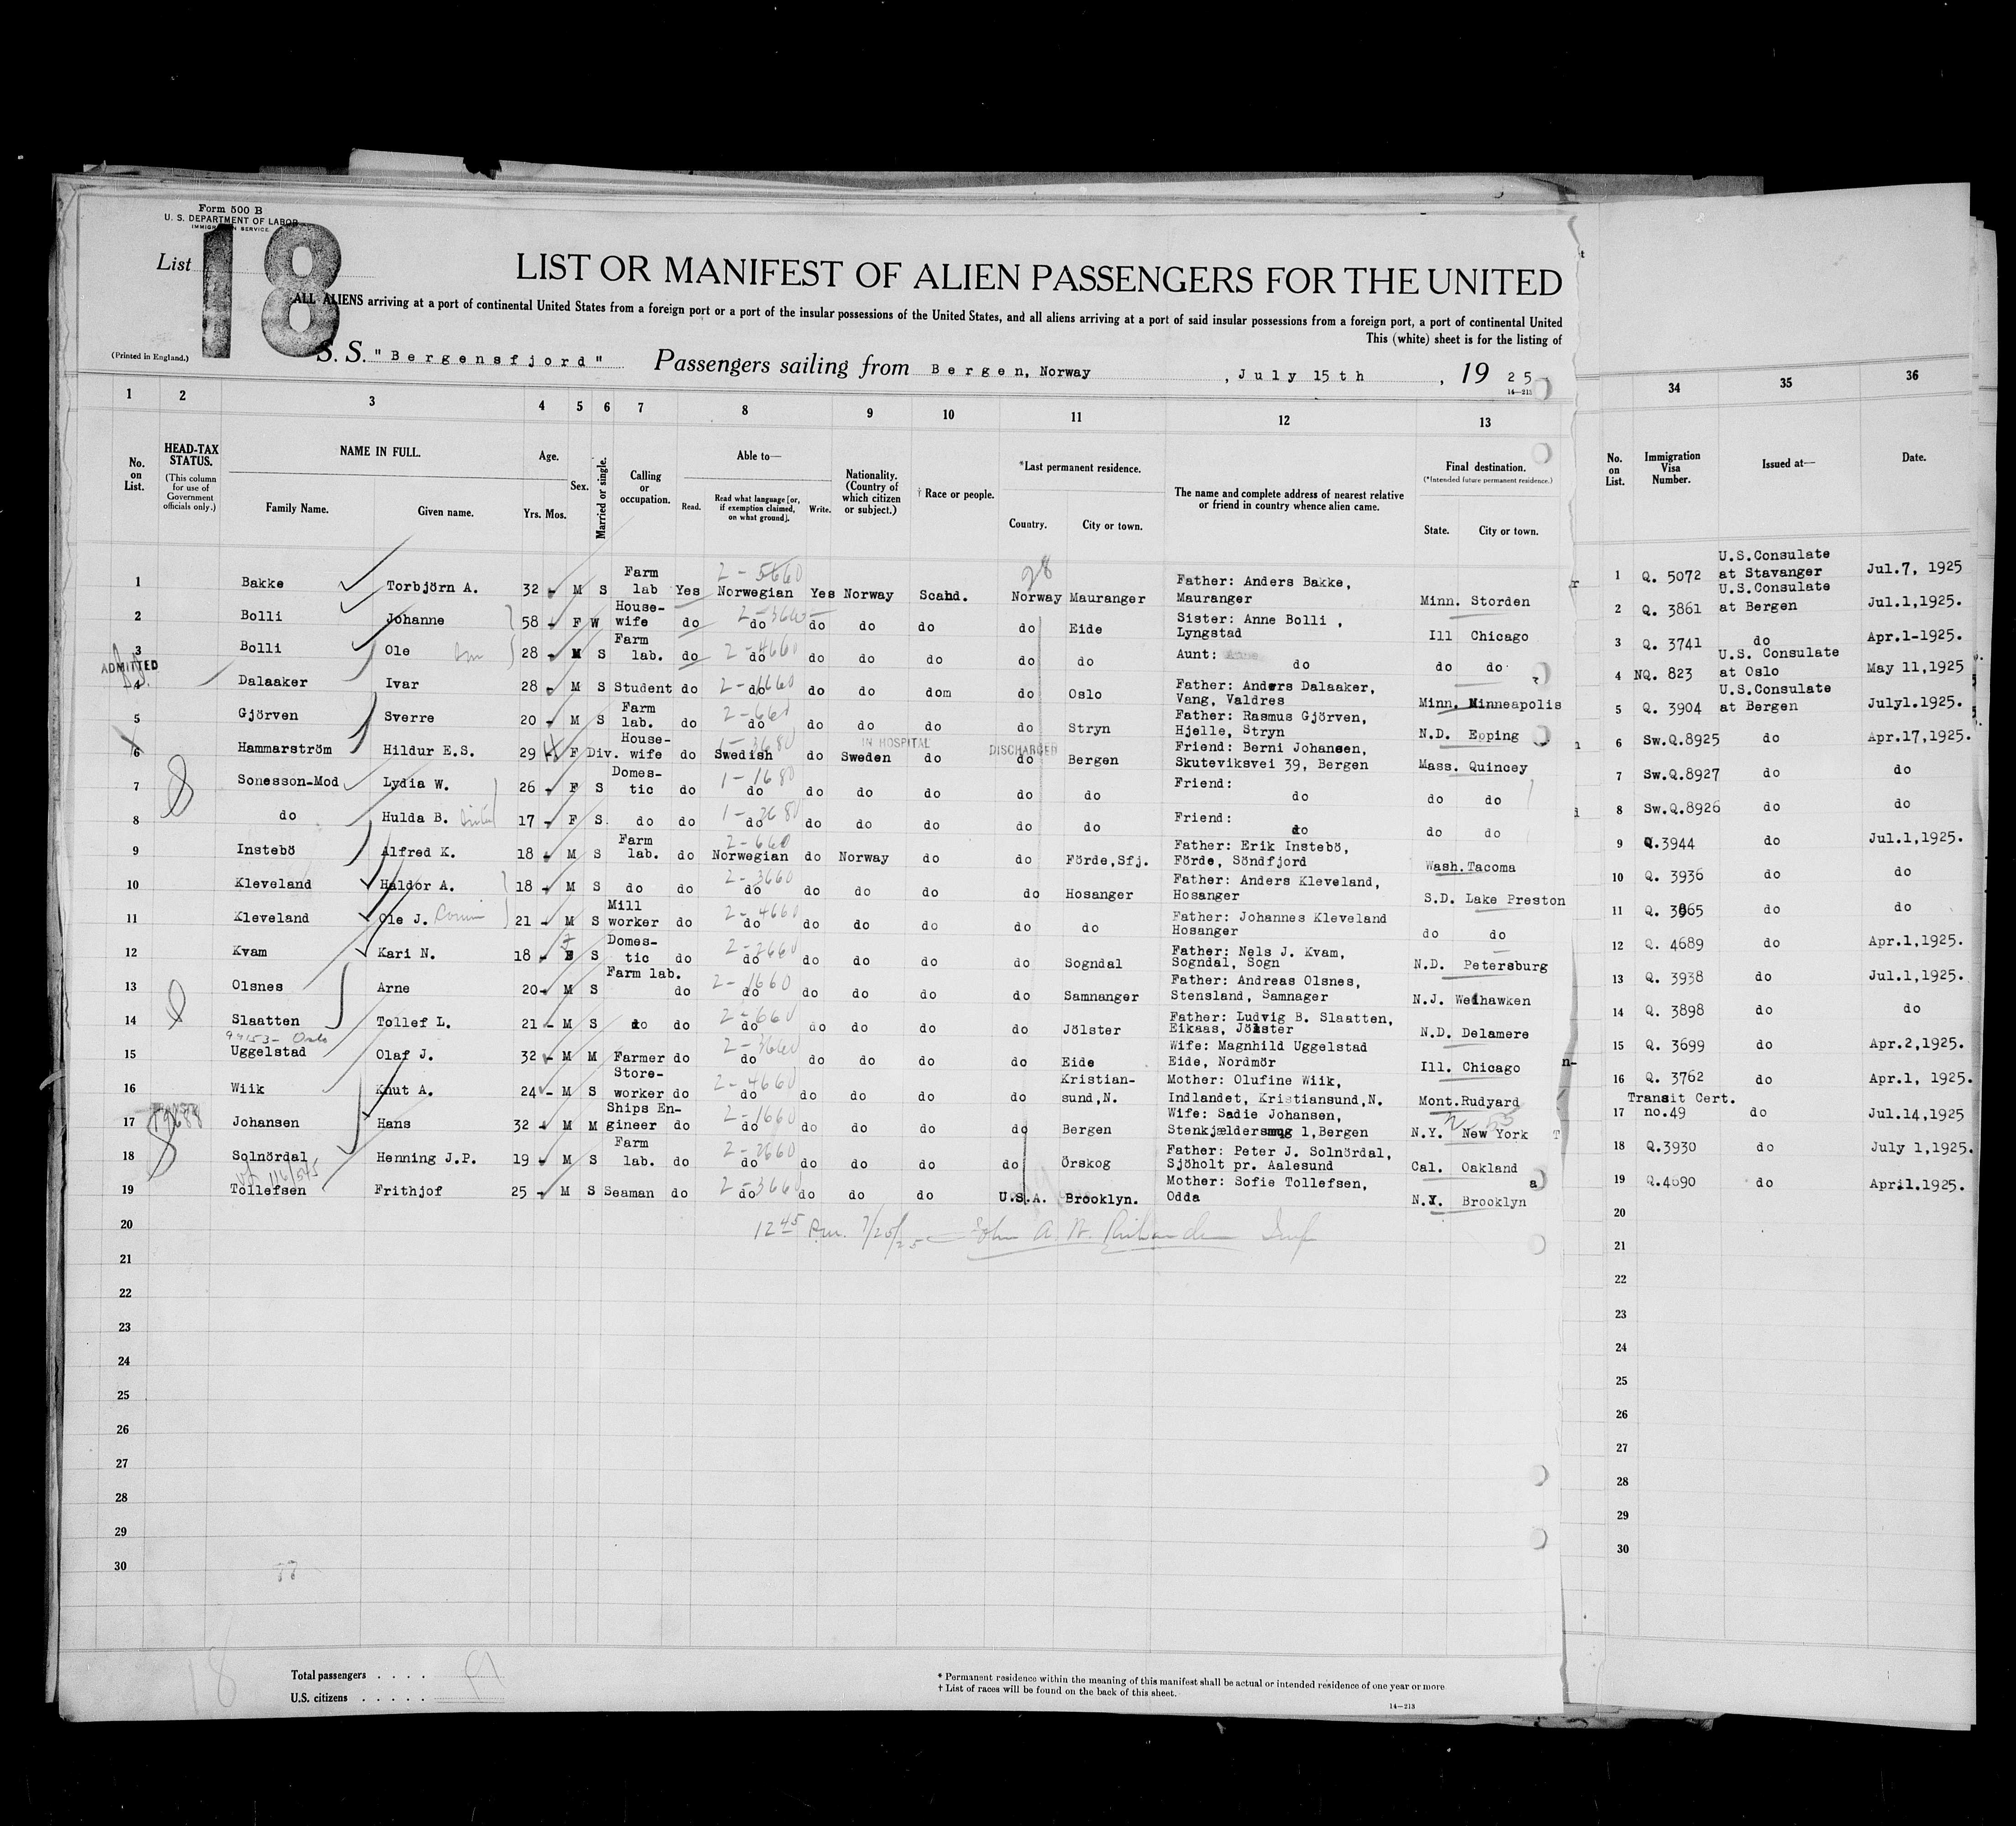 Form 500 B
U. S. DEPARTMENT OF LABOR
IMMIGRATION SERVICE.
List 18
LIST OR MANIFEST OF ALIEN PASSENGERS FOR THE UNITED
ALL ALIENS arriving at a port of continental United States from a foreign port or a port of the insular possessions of the United States, and all aliens arriving at a port of said insular possessions from a foreign port, a port of continental United
This (white) sheet is for the listing of
(Printed in England.)
S. S. "Bergensfjord" Passengers sailing from Bergen, Norway, July 15th, 19 25
14—213
1 2 3 4 5 6 7 8 9 10 11 12 13 34 35 36
No. on List. HEAD-TAX STATUS. (This column for use of Government officials only.) NAME IN FULL. Family Name. Given name. Age. Yrs. Mos. Sex. Married or single. Calling or occupation. Able to— Read. Read what language [or, if exemption claimed, on what ground]. Write. Nationality. (Country of which citizen or subject.) † Race or people. *Last permanent residence. Country. City or town. The name and complete address of nearest relative or friend in country whence alien came. Final destination. (*Intended future permanent residence.) State. City or town. No. on List. Immigration Visa Number. Issued at— Date.
1 Bakke Torbjörn A. 32 - M S Farm lab Yes 2-5660 Norwegian Yes Norway Scand. 98 Norway Mauranger Father: Anders Bakke, Mauranger Minn. Storden 1 Q. 5072 U.S.Consulate at Stavanger Jul.7, 1925
2 Bolli Johanne 58 - F W House-wife do 2-3660 do do do do do Eide Sister: Anne Bolli, Lyngstad Ill Chicago 2 Q. 3861 U.S.Consulate at Bergen Jul.1,1925.
3 Bolli Ole 28 - M S Farm lab. do 2-4660 do do do do do do Aunt: do do do 3 Q. 3741 do Apr.1-1925.
ADMITTED
4 Dalaaker Ivar 28 - M S Student do 2-1660 do do do dom do Oslo Father: Anders Dalaaker, Vang, Valdres Minn. Minneapolis 4 NQ. 823 U.S. Consulate at Oslo May 11,1925
5 Gjörven Sverre 20 - M S Farm lab. do 2-660 do do do do do Stryn Father: Rasmus Gjörven, Hjelle, Stryn N.D. Epping 5 Q. 3904 U.S.Consulate at Bergen July1.1925.
6 Hammarström Hildur E.S. 29 F Div. House-wife do 1-3680 Swedish do Sweden IN HOSPITAL do DISCHARGED do Bergen Friend: Berni Johansen, Skuteviksvei 39, Bergen Mass. Quincey 6 Sw.Q.8925 do Apr.17,1925.
7 Sonesson-Mod Lydia W. 26 - F S Domes-tic do 1-1680 do do do do do do Friend: do do do 7 Sw.Q.8927 do do
8 do Hulda B. 17 - F S. do do 1-3680 do do do do do do Friend: do do do 8 Sw.Q.8926 do do
9 Instebö Alfred K. 18 - M S Farm lab. do 2-660 Norwegian do Norway do do Förde,Sfj. Father: Erik Instebö, Förde, Söndfjord Wash.Tacoma 9 Q.3944 do Jul.1,1925.
10 Kleveland Haldor A. 18 - M S do do 2-3660 do do do do do Hosanger Father: Anders Kleveland, Hosanger S.D. Lake Preston 10 Q. 3936 do do
11 Kleveland Ole J. 21 - M S Mill worker do 2-4660 do do do do do do Father: Johannes Kleveland Hosanger do do 11 Q. 3965 do do
12 Kvam Kari N. 18 - F S Domes-tic do 2-2660 do do do do do Sogndal Father: Nels J. Kvam, Sogndal, Sogn N.D. Petersburg 12 Q. 4689 do Apr.1,1925.
13 Olsnes Arne 20 - M S Farm lab. do 2-1660 do do do do do Samnanger Father: Andreas Olsnes, Stensland, Samnager N.J. Wedhawken 13 Q. 3938 do Jul.1,1925.
14 Slaatten Tollef L. 21 - M S do do 2-660 do do do do do Jölster Father: Ludvig B. Slaatten, Eikaas, Jölster N.D. Delamere 14 Q. 3898 do do
99153- Oslo
15 Uggelstad Olaf J. 32 - M M Farmer do 2-3660 do do do do do Eide Wife: Magnhild Uggelstad Eide, Nordmör Ill. Chicago 15 Q. 3699 do Apr.2,1925.
16 Wiik Knut A. 24 - M S Store-worker do 2-4660 do do do do do Kristian-sund,N. Mother: Olufine Wiik, Indlandet, Kristiansund,N. Mont.Rudyard 16 Q. 3762 do Apr.1, 1925.
17 Johansen Hans 32 - M M Ships En-gineer do 2-1660 do do do do do Bergen Wife: Sadie Johansen, Stenkjældersmug 1,Bergen N.Y. New York 17 Transit Cert. no.49 do Jul.14,1925
18 Solnördal Henning J.P. 19 - M S Farm lab. do 2-2660 do do do do do Örskog Father: Peter J. Solnördal, Sjöholt pr. Aalesund Cal. Oakland 18 Q.3930 do July 1,1925.
19 Tollefsen Frithjof 25 - M S Seaman do 2-3660 do do do do U.S.A. Brooklyn. Mother: Sofie Tollefsen, Odda N.Y. Brooklyn 19 Q.4690 do April.1925.
20 20
12 45 Pm. 7/25/25 John A. W. Insp
21 21
22 22
23 23
24 24
25 25
26 26
27 27
28 28
29 29
30 30
18
Total passengers . . . .
U.S. citizens . . . . .
* Permanent residence within the meaning of this manifest shall be actual or intended residence of one year or more
† List of races will be found on the back of this sheet.
14—213